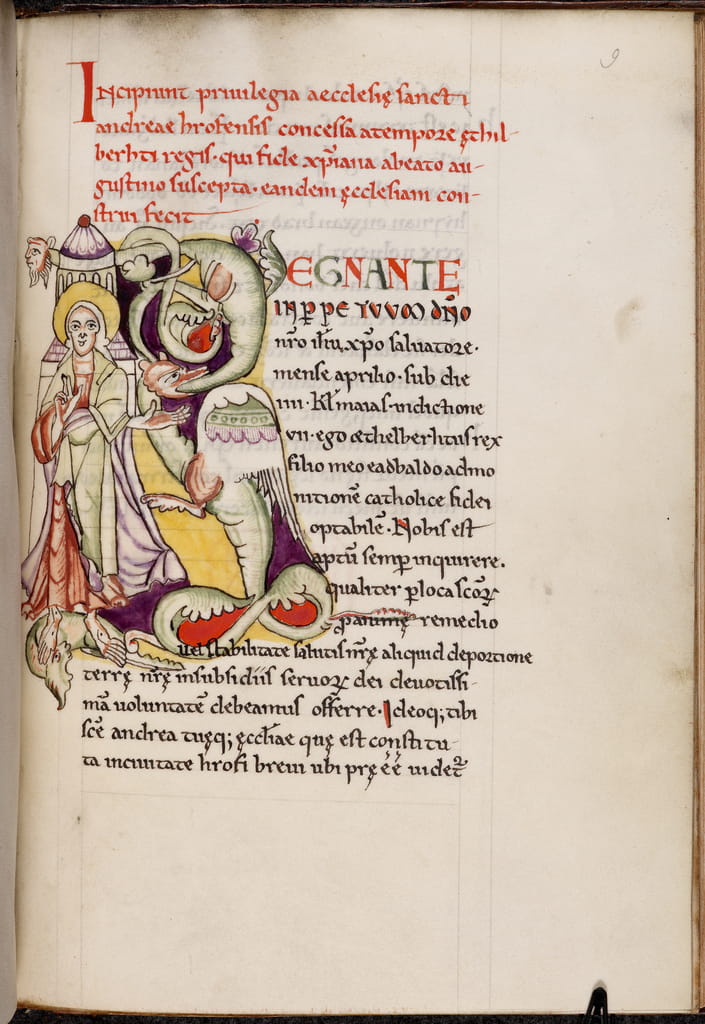 9
Incipiunt priuilegia aecclesię sancti
andreae hrofensis concessa a tempore ęthil-
berhti regis. qui fide xp̄iana a beato au-
gustino suscepta. eandem ęcclesiam con-
strui fecit.
REGNANTE
IN P̄PETUUM DÑO
nr̄o ih̄u xp̄o saluatore.
mense aprilio. sub die
iiii. kl̄ maias. indictione
vii. ego æthelberhtus rex
filio meo eadbaldo admo
nitionē catholice fidei
optabilē. Nobis est
aptū semꝑ inquirere.
qualiter ꝑ loca sc̄oꝝ
ꝓ animę remedio
uel stabilitate salutis nr̄ę aliquid de portione
terrę nr̄ę in subsidiis seruoꝝ dei deuotissi-
mā uoluntatē debeamus offerre. Ideoq; tibi
sc̄e andrea tuęq; ęccl̄iae quę est constitu-
ta in ciuitate hrofi breui ubi pręēē uidet᷑